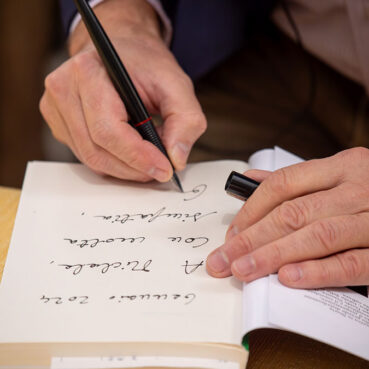 Gennaio 2024
A Michele,
Con molta
simpatia,